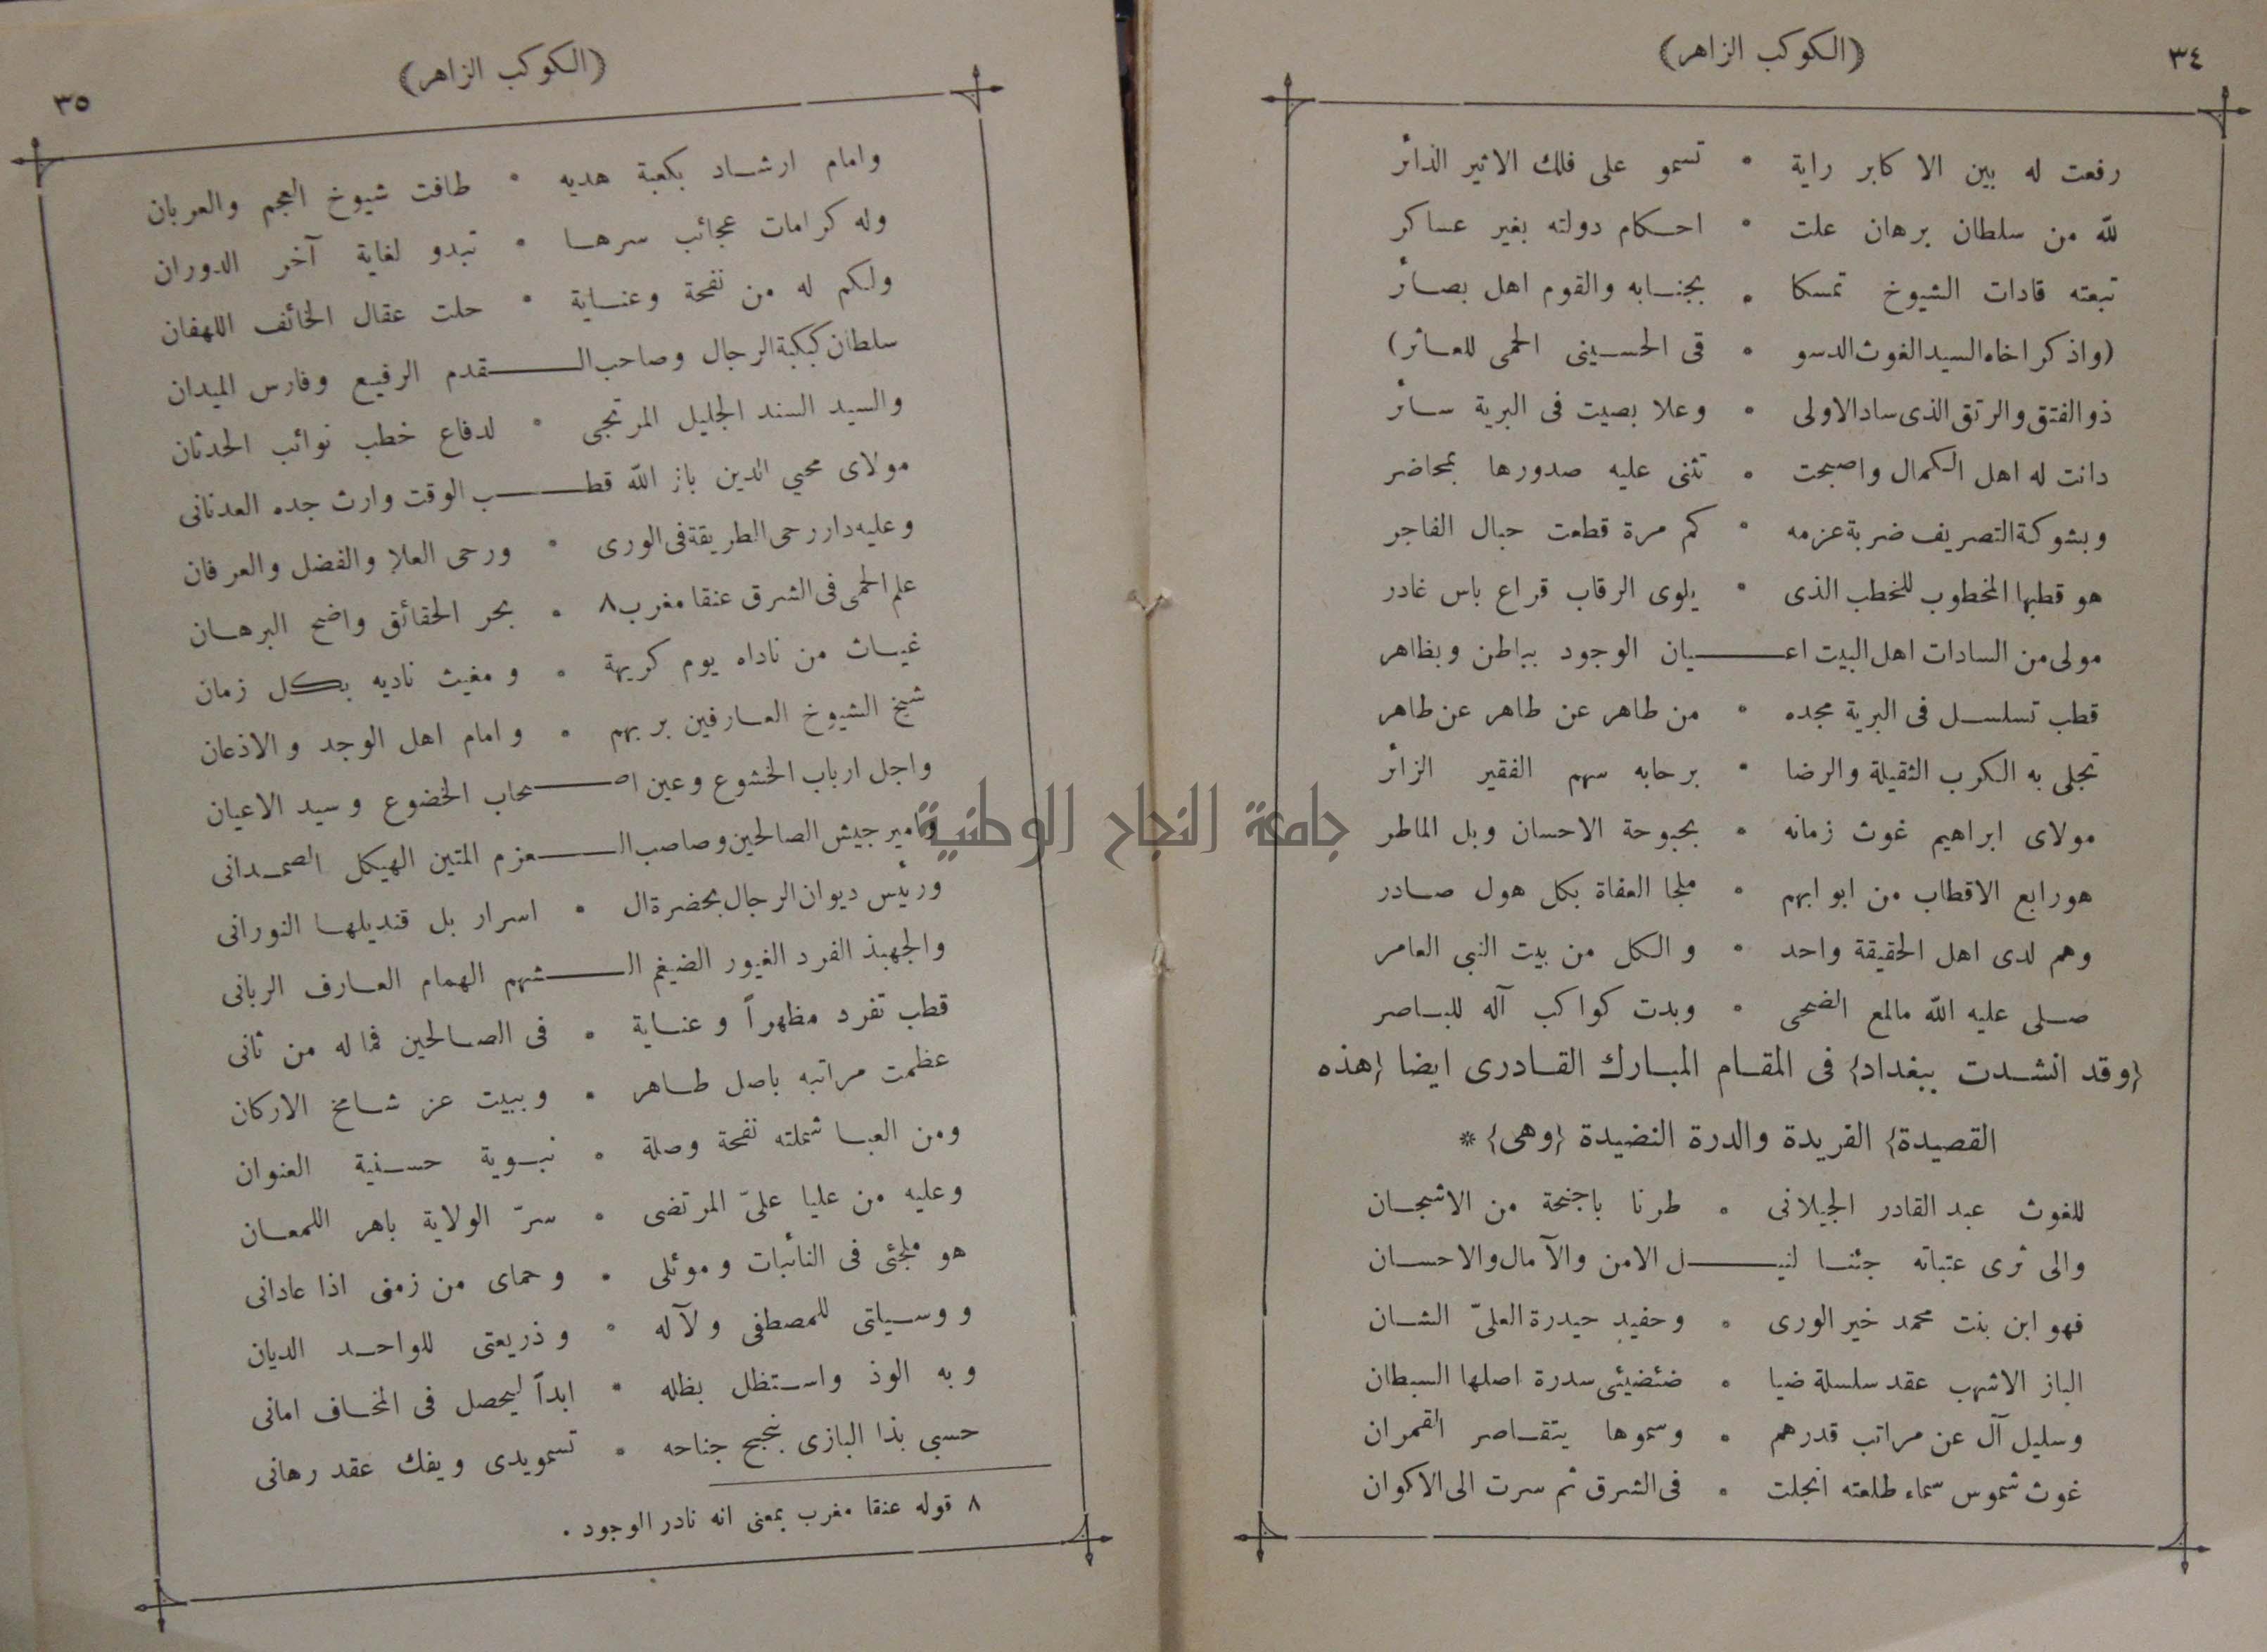 ٣٤
(الكوكب الزاهر)
رفعت له بين الاكابر راية • تسمو على فلك الاثير الدائر
لله من سلطان برهان علت • احكام دولته بغير عساكر
تبعته قادات الشيوخ تمسكا • بجنابه والقوم اهل بصائر
(واذكر اخاه السيد الغوث الدسو • قى الحسينى الحمى للعائر)
ذو الفتق والرتق الذى ساد الاولى • وعلا بصيت فى البرية سائر
دانت له اهل الكمال واصبحت • تثنى عليه صدورها بمحاضر
وبشوكة التصريف ضربة عزمه • كم مرة قطعت حبال الفاجر
هو قطبها المخطوب للخطب الذى • يلوى الرقاب قراع باس غادر
مولى من السادات اهل البيت اعـــيان الوجود بباطن وبظاهر
قطب تسلسل فى البرية مجده • من طاهر عن طاهر عن طاهر
تجلى به الكرب الثقيلة والرضا • برحابه سهم الفقير الزائر
مولاى ابراهيم غوث زمانه • بحبوحة الاحسان وبل الماطر
هو رابع الاقطاب من ابوابهم • ملجا العفاة بكل هول صادر
وهم لدى اهل الحقيقة واحد • والكل من بيت النبى العامر
صلى عليه الله مالمع الضحى • وبدت كواكب آله للباصر
{وقد انشدت ببغداد} فى المقام المبارك القادرى ايضا {هذه
القصيدة} الفريدة والدرة النضيدة {وهى} *
للغوث عبد القادر الجيلانى • طرنا باجنحة من الاشجان
والى ثرى عتباته جئنا لنيـــل الامن والآمال والاحسان
فهو ابن بنت محمد خير الورى • وحفيد حيدرة العلىّ الشان
الباز الاشهب عقد سلسلة ضيا • ضئضيئى سدرة اصلها السبطان
وسليل آل عن مراتب قدرهم • وسموها يتقاصر القمران
غوث شموس سماء طلعته انجلت • فى الشرق ثم سرت الى الاكوان
(الكوكب الزاهر)
٣٥
وامام ارشاد بكعبة هديه • طافت شيوخ العجم والعربان
وله كرامات عجائب سرها • تبدو لغاية آخر الدوران
ولكم له من نفحة وعناية • حلت عقال الخائف اللهفان
سلطان كبكبة الرجال وصاحب الـــقدم الرفيع وفارس الميدان
والسيد السند الجليل المرتجى • لدفاع خطب نوائب الحدثان
مولاى محيي الدين باز الله قطـــب الوقت وارث جده العدنانى
وعليه دار رحى الطريقة فى الورى • ورحى العلا والفضل والعرفان
علم الحمى فى الشرق عنقا مغرب ٨ • بحر الحقائق واضح البرهان
غياث من ناداه يوم كريهة • ومغيث ناديه بكل زمان
شيخ الشيوخ العارفين بربهم • وامام اهل الوجد والاذعان
واجل ارباب الخشوع وعين اصـــحاب الخضوع وسيد الاعيان
وامير جيش الصالحين وصاصب الـــعزم المتين الهيكل الصمدانى
ورئيس ديوان الرجال بحضرة ال • اسرار بل قنديلها النورانى
والجهبذ الفرد الغيور الضيغم الـــشهم الهمام العارف الربانى
قطب تفرد مظهراً وعناية • فى الصالحين فما له من ثانى
عظمت مراتبه باصل طاهر • وببيت عز شامخ الاركان
ومن العبا شملته نفحة وصلة • نبوية حسنية العنوان
وعليه من عليا علىّ المرتضى • سرّ الولاية باهر اللمعان
هو ملجئى فى النائبات وموئلى • وحماى من زمنى اذا عادانى
ووسيلتى للمصطفى ولآله • وذريعتى للواحد الديان
وبه الوذ واستظل بظله • ابداً ليحصل فى المخاف امانى
حسبي بذا البازى بنجيح جناحه • تسمو يدى ويفك عقد رهانى
٨ قوله عنقا مغرب بمعنى انه نادر الوجود .
جامعة النجاح الوطنية